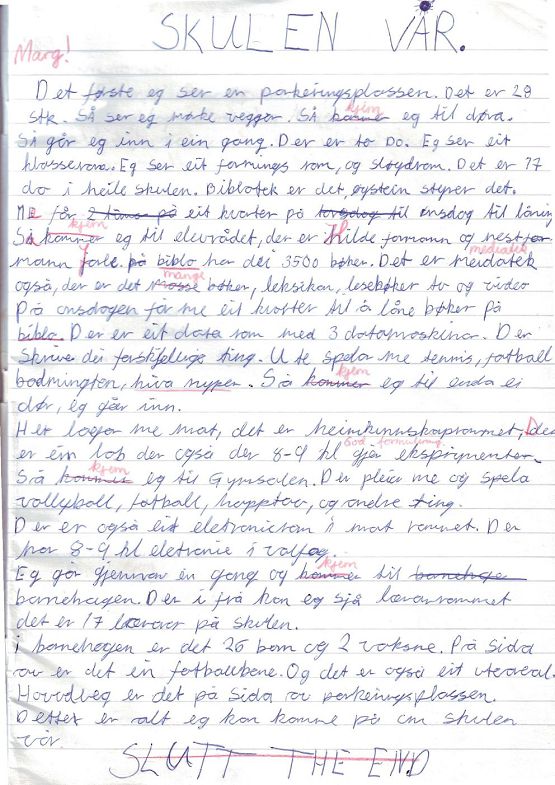 SKULEN VÅR.
Marg!
Det første eg ser en parkeringsplassen. Det er 29
stk. Så ser eg make veggar. Så kommer kjem eg til døra.
Så går eg inn i ein gang. Der er to Do. Eg ser eit
klasserom. Eg ser eit formings rom, og sløydrom. Det er 17
do i heile skulen. Bibliotek er det, øystein styrer det.
Me får 2 timar på eit kvarter på torsdag til onsdag til låning
Så kommer kjem eg til elevrådet, der er Hilde formann og nestfor-
mann Jarle. på biblo har dei 3500 bøker. Det er meidatek mediatek
også, der er det masse mange bøker, leksikon, lesebøker tv og video
På onsdagen får me eit kvarter til å låne bøker på
biblo. Der er eit data rom med 3 datamaskinar. Der
skrive dei forskjellige ting. Ute spela me tennis, fotball
badmington, hiva nyper. Så kommer kjem eg til enda ei
dør, eg går inn.
Her lagar me mat, det er heimkunnskaprommet, Der
er ein lab der også der 8-9 kl gjer eksprimenter.
God formulering.
Så kommer kjem eg til Gymsalen. Der pleie me og spela
vollyball, fotball, hopptau, og andre ting.
Der er også eit eletronicrom i mat rommet. Der
har 8-9 kl eletronic i valfag.
Eg går gjennom ein gang og kommer kjem til barnehage
barnehagen. Der i frå kan eg sjå lærarrommet
det er 17 lærarar på skulen.
i barnehagen er det 26 barn og 2 vaksne. På sida
av er det ein fotballbane. Og det er også eit uteareal.
Hovudveg er det på sida av parkeringsplassen.
Dette er alt eg kan komme på om skulen
vår.
SLUTT THE END